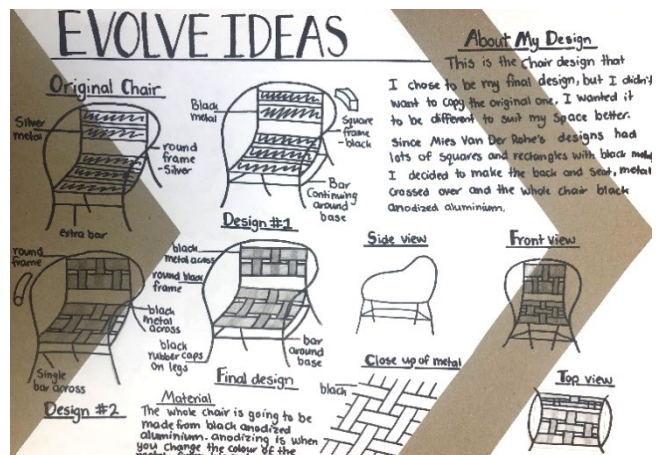 EVOLVE IDEAS
Original Chair
Silver metal
round frame - Silver
extra bar
Black metal
Square frame - black
Bar Continuing around base
Design #1
About My Design
This is the chair design that
I chose to be my final design, but I didn't
want to copy the original one. I wanted it
to be different to suit my space better.
Since Mies Van Der Rohe's designs had
lots of squares and rectangles with black metal
I decided to make the back and seat, metal
crossed over and the whole chair black
anodized aluminium.
round frame
black metal across
Single bar across
Design #2
black metal across
round black frame
black rubber caps on legs
bar around base
Final design
Side view
Front view
Close up of metal
black
Top view
Material
The whole chair is going to be
made from black anodized
aluminium. anodizing is when
you change the colour of the